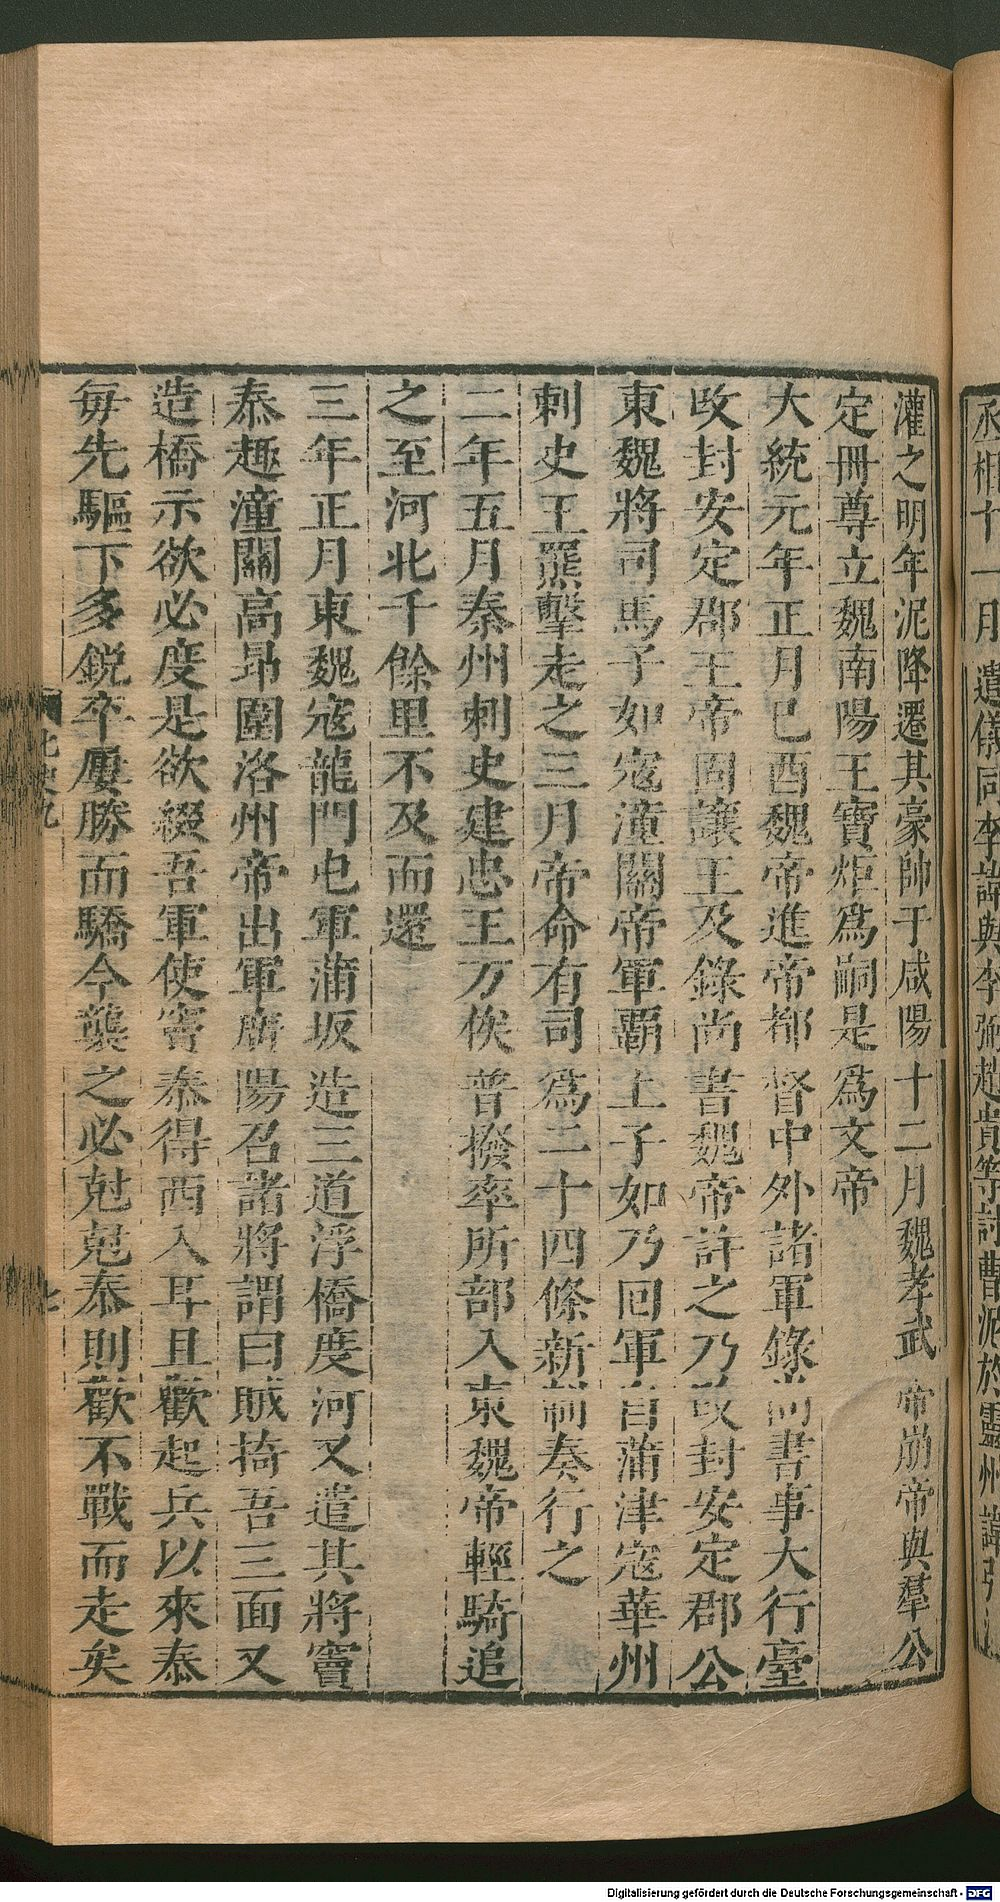 丞相十一月遣儀同李諱與李弼趙貴等討曹泥於靈州諱引
灌之明年泥降遷其豪帥于咸陽十二月魏孝武帝崩帝與羣公
定冊尊立魏南陽王寶炬爲嗣是爲文帝
大統元年正月巳酉魏帝進帝都督中外諸軍錄尚書事大行臺
改封安定郡王帝固讓王及錄尚書魏帝許之乃改封安定郡公
東魏將司馬子如寇潼關帝軍霸上子如乃回軍自蒲津寇華州
刺史王羆擊走之三月帝命有司爲二十四條新制奏行之
二年五月秦州刺史建忠王万俟普撥率所部入東魏帝輕騎追
之至河北千餘里不及而還
三年正月東魏寇龍門屯軍蒲坂造三道浮僑度河又遣其將竇
泰趣潼關高昂圍洛州帝出軍廣陽召諸將謂曰賊掎吾三面又
造橋示欲必度是欲綴吾軍使竇泰得西入耳且歡起兵以來泰
每先驅下多銳卒屢勝而驕今襲之必尅尅泰則歡不戰而走矣
北史九
七
Digitalisierung gefördert durch die Deutsche Forschungsgemeinschaft - DFG